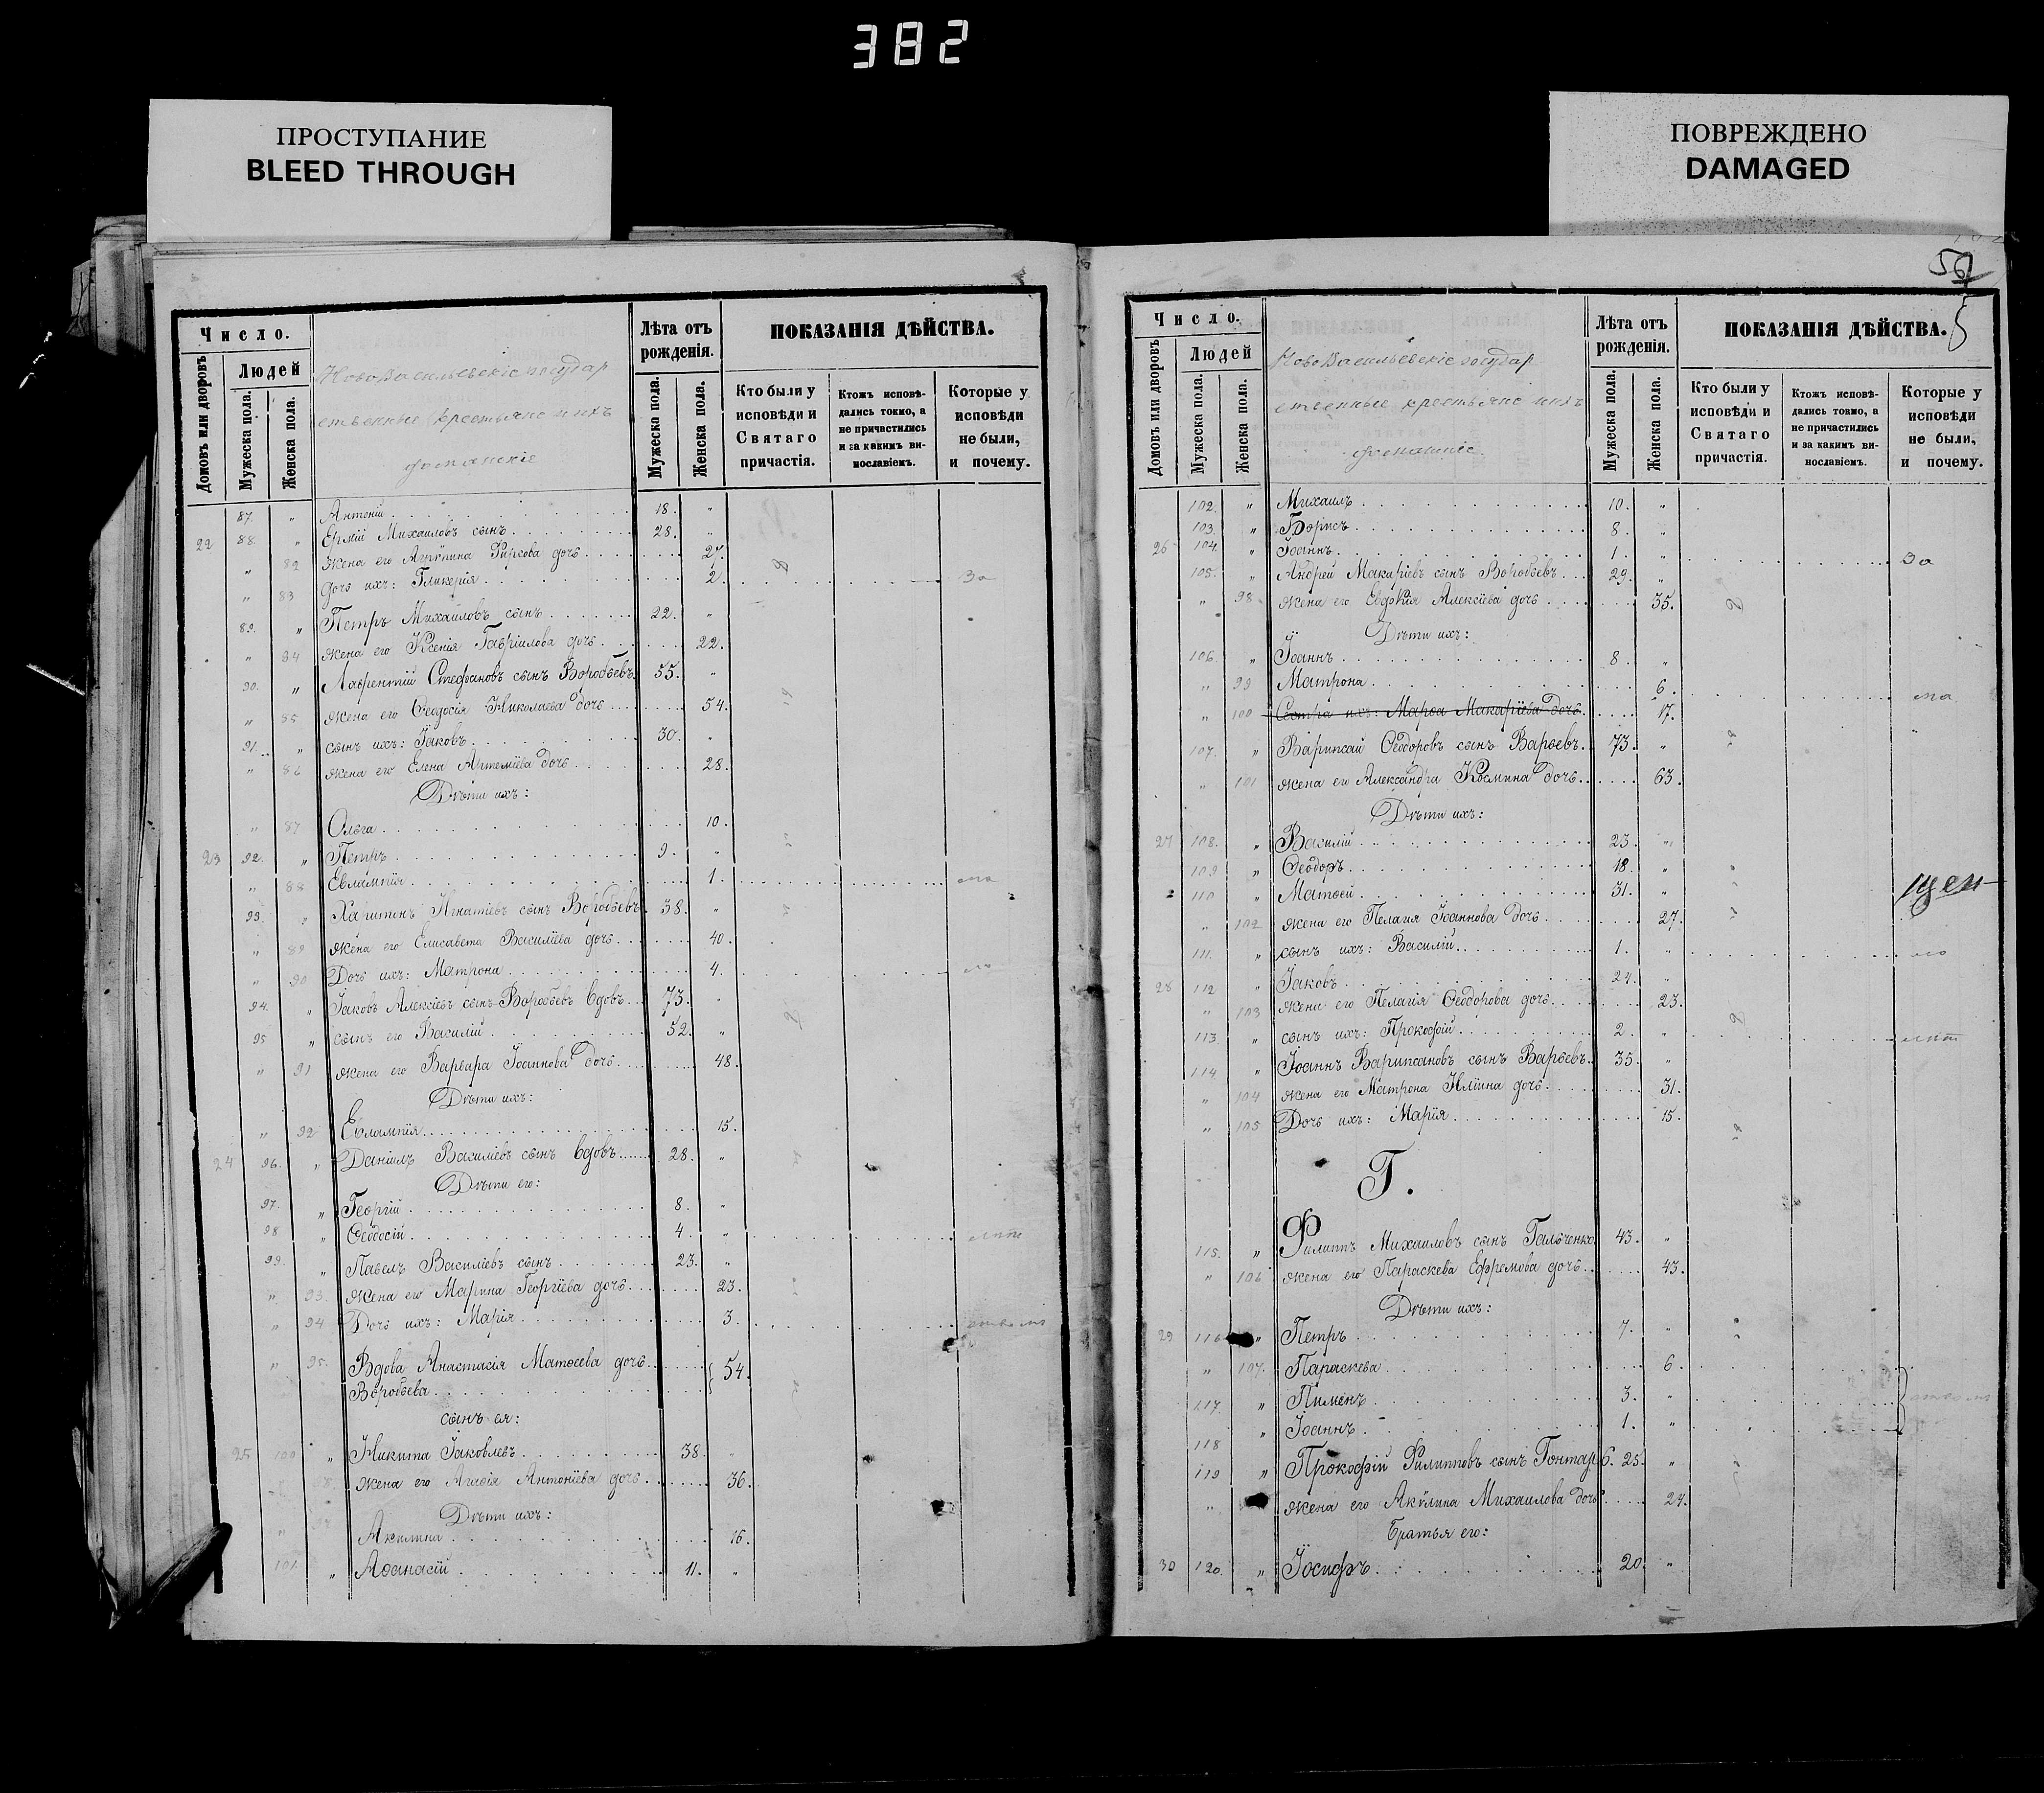 382
ПРОСТУПАНИЕ
BLEED THROUGH
ПОВРЕЖДЕНО
DAMAGED
Число.
Домовъ или дворовъ
Людей
Мужеска пола.
Женска пола.
НовоВасильевскіе государ
ственные крестьяне и ихъ
домашніе
Лѣта отъ рожденія.
Мужеска пола.
Женска пола.
ПОКАЗАНІЯ ДѢЙСТВА.
Кто были у исповѣди и Святаго причастія.
Ктожъ исповѣ-дались токмо, а не причастились и за какимъ ви-нословіемъ.
Которые у исповѣди не были, и почему.
87. " Антоній 18. "
22 88. " Ермій Михаиловъ сынъ 28. "
" 82 жена его Агрѵпина Фирсова дочь 27.
" 83 дочь ихъ: Гликерія 2. За
89. " Петръ Михаиловъ сынъ 22. "
" 84 жена его Ксенія Гавріилова дочь 22.
90. " Лаврентій Стефановъ сынъ Воробьевъ 55. "
" 85 жена его Ѳеодосія Николаева дочь 54.
91. " сынъ ихъ: Іаковъ 30. "
" 86 жена его Елена Артеміева дочь 28.
Дѣти ихъ:
" 87 Ольга 10.
23 92. " Петръ 9. "
" 88 Евлампія 1.
93. " Харитонъ Игнатіевъ сынъ Воробьевъ 38. "
" 89 жена его Елисавета Василіева дочь 40.
" 90 Дочь ихъ: Матрона 4.
94. " Іаковъ Алексіевъ сынъ Воробьевъ вдовъ 73. "
95 " сынъ его Василій 52. "
" 91 жена его Варвара Іоаннова дочь 48.
Дѣти ихъ:
" 92 Евлампія 15.
24 96. " Даніилъ Василіевъ сынъ вдовъ 28. "
Дѣти его:
97. " Георгій 8. "
98 " Ѳеодосій 4. "
99. " Павелъ Василіевъ сынъ 23. "
" 93. жена его Марина Георгіева дочь 23.
" 94 Дочь ихъ: Марія 3.
" 95. Вдова Анастасія Матѳеева дочь 54.
Воробьева
сынъ ея:
25 100 " Никита Іаковлевъ 38. "
жена его Агаѳія Антоніева дочь 36.
Дѣти ихъ:
" Акилина 16.
101. " Аѳанасій 11. "
56
5
Число.
Домовъ или дворовъ
Людей
Мужеска пола.
Женска пола.
НовоВасильевскіе государ
ственные крестьяне ихъ
домашніе.
Лѣта отъ рожденія.
Мужеска пола.
Женска пола.
ПОКАЗАНІЯ ДѢЙСТВА.
Кто были у исповѣди и Святаго причастія.
Ктожъ исповѣ-дались токмо, а не причастились и за какимъ ви-нословіемъ.
Которые у исповѣди не были, и почему.
102. " Михаилъ 10. "
103. " Борисъ 8. "
26 104. " Іоаннъ 1. " За
105. " Андрей Макаріевъ сынъ Воробьевъ 29. "
" 98 жена его Евдокія Алексіева дочь 35.
Дѣти ихъ:
106. " Іоаннъ 8. "
" 99 Матрона 6.
" 100 Сестра ихъ: Марѳа Макаріева дочь 17.
107. " Варипсай Ѳеодоровъ сынъ Варьевъ 73. "
" 101 жена его Александра Космина дочь 63.
Дѣти ихъ:
27 108. " Василій 23. "
109 " Ѳеодоръ 18. "
110 " Матѳей 31. "
щен-
" 102 жена его Пелагія Іоаннова дочь 27.
111. " сынъ ихъ: Василій 1. "
28 112 " Іаковъ 24. "
" 103 жена его Пелагія Ѳеодорова дочь 23.
113 " сынъ ихъ: Прокофій 2. "
114 " Іоаннъ Варипсановъ сынъ Варьевъ 35. "
" 104 жена его Матрона Иліина дочь 31.
" 105 Дочь ихъ: Марія 15.
Г.
115. " Филиппъ Михаиловъ сынъ Гальченко 43. "
" 106 жена его Параскева Ефремова дочь 43.
Дѣти ихъ:
29 116 " Петръ 7. "
" 107. Параскева 6.
117. " Пименъ 3. "
118 " Іоаннъ 1. "
119 " Прокофій Филипповъ сынъ Гонтарь 25. "
" жена его Акѵлина Михаилова дочь 24.
Братья его:
30 120. " Іосифъ 20. "